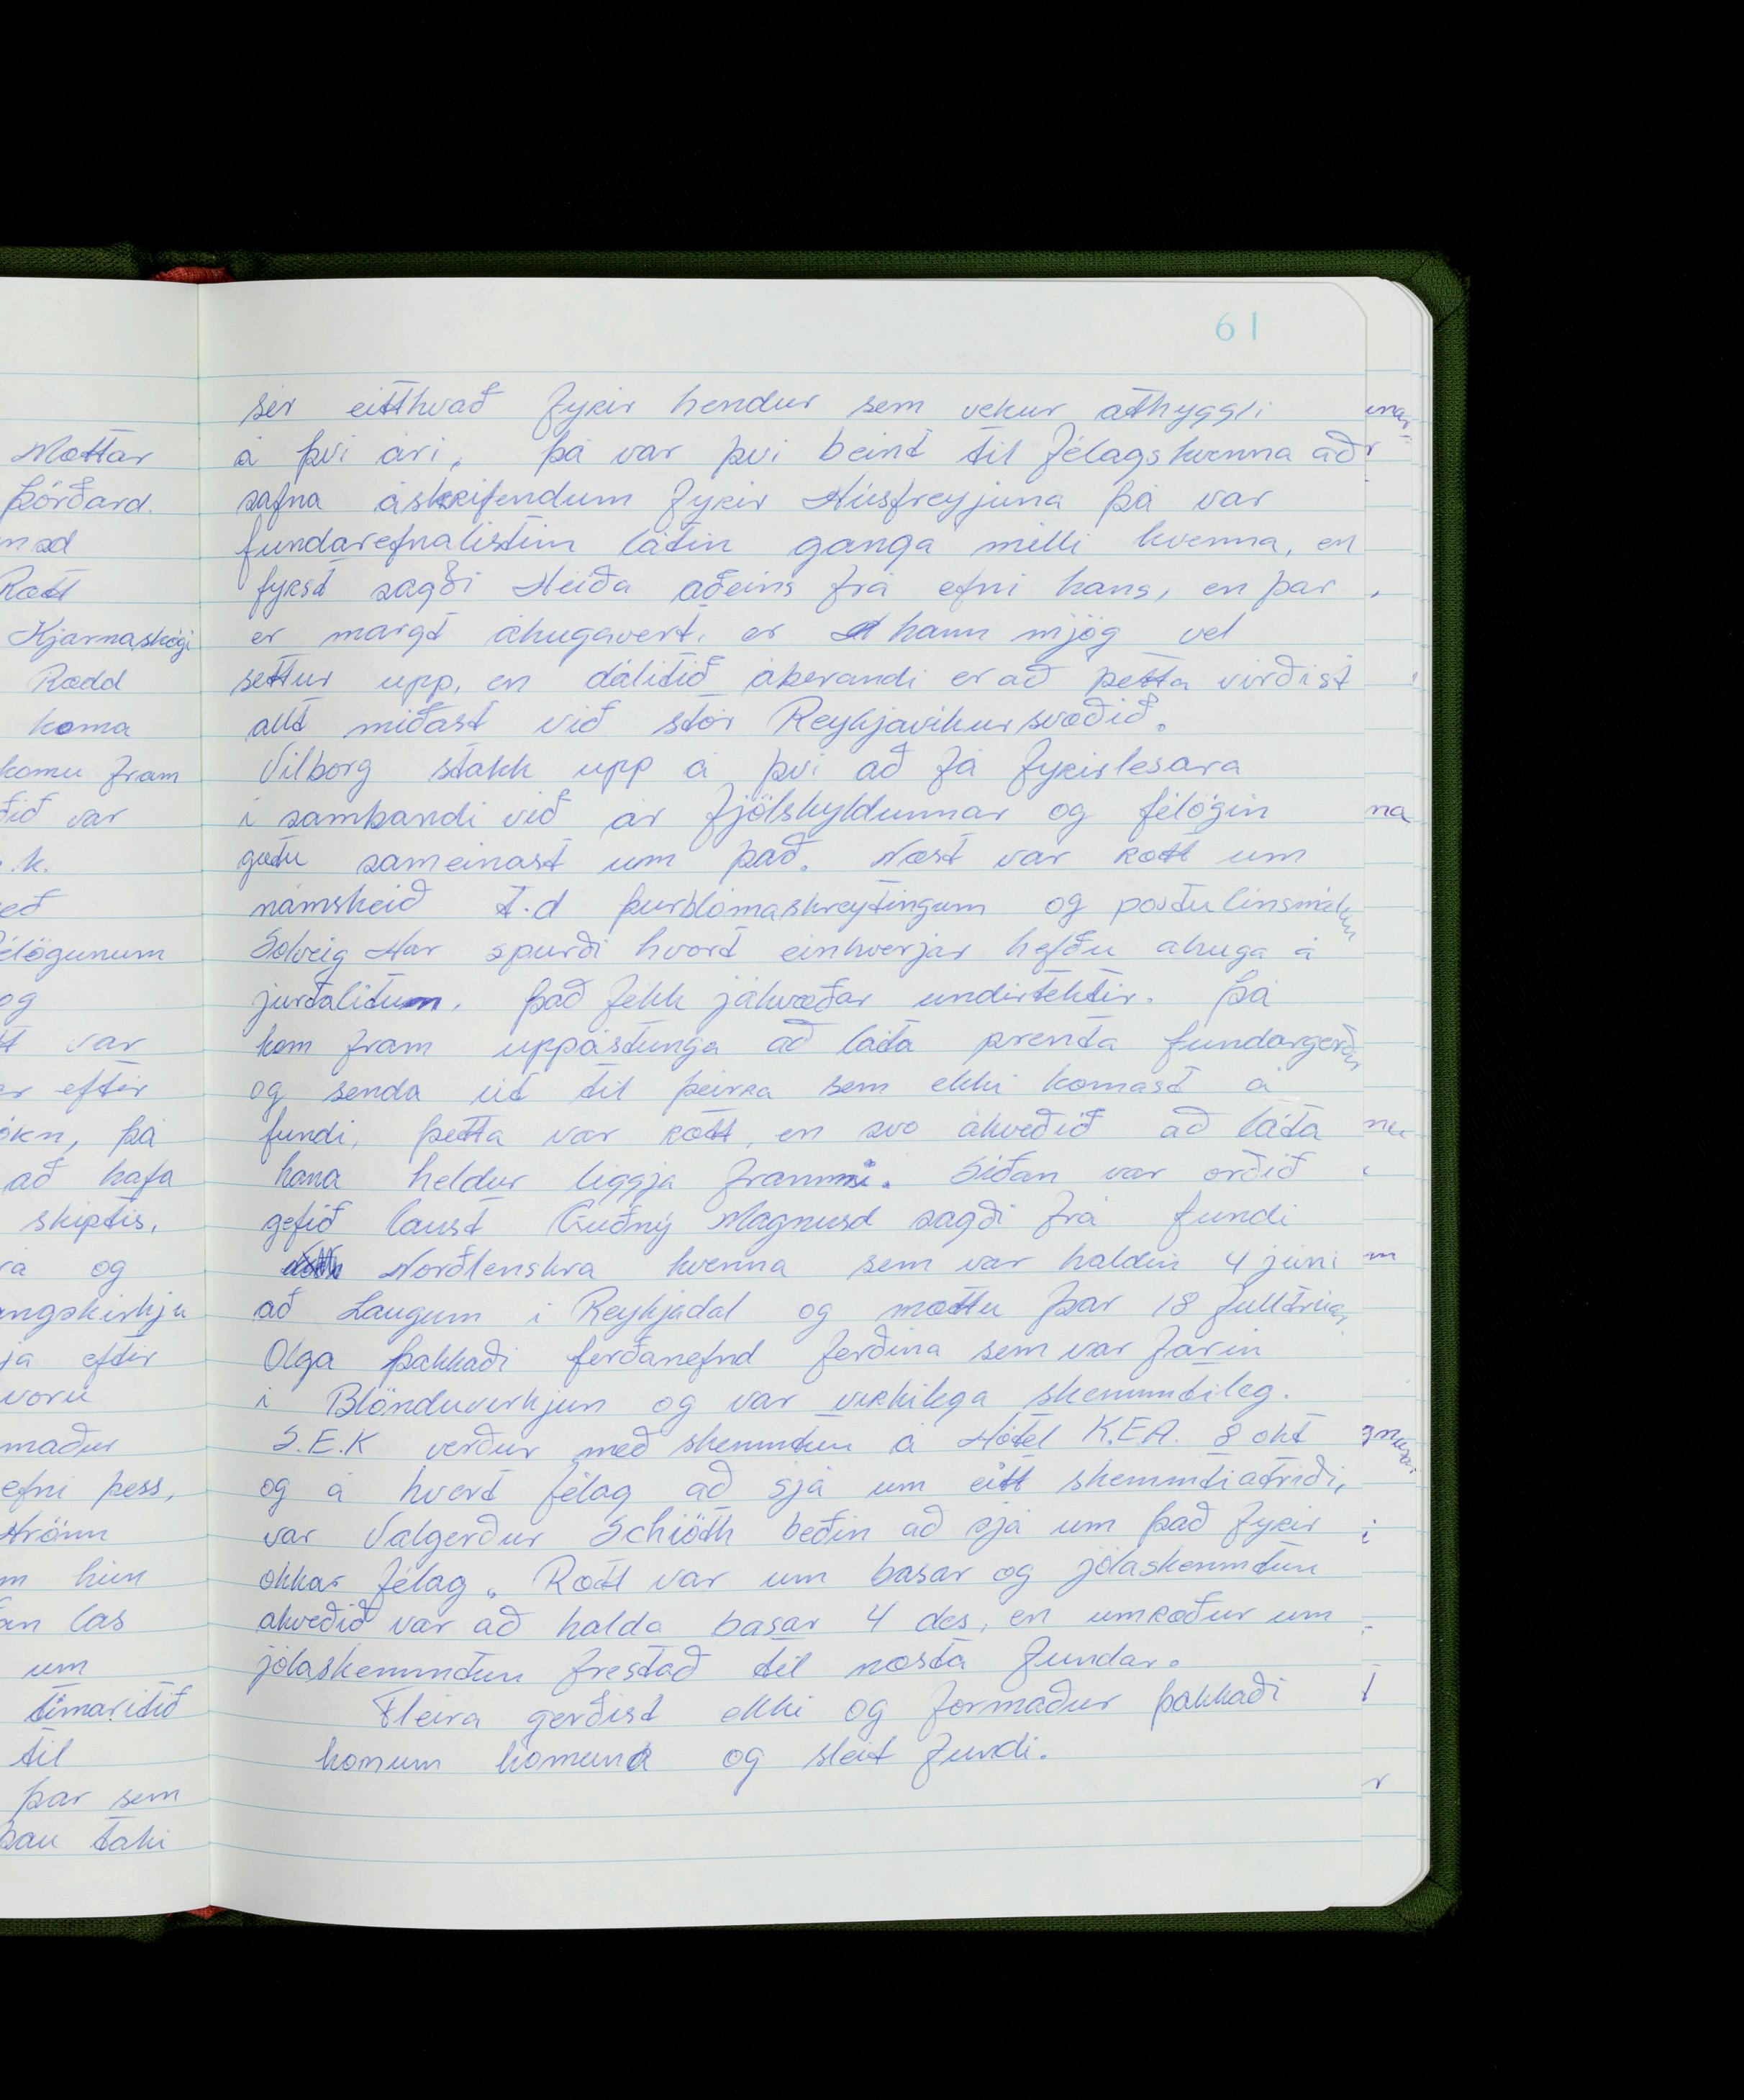 61
sér eitthvað fyrir hendur sem vekur athyggli
á því ári, þá var því beint til félagskvenna að
safna áskrifendum fyrir Húsfreyjuna þá var
fundarefnalistin látin ganga milli kvenna, en
fyrst sagði Heiða aðeins frá efni hans, en þar
er margt áhugavert. er hann mjög vel
settur upp, en dálitið áberandi er að þetta virðist
allt miðast við stór Reykjavikursvæðið.
Vilborg stakk upp á því að fá fyrirlesara
i sambandi við ár fjölskyldunnar og félögin
gætu sameinast um það. Næst var rætt um
námskeið t.d þurblómaskreytingum og postulinsmálun
Solveig Har spurði hvort einhverjar hefðu ahuga á
jurtalitum. Það fekk jákvæðar undirtektir. Þá
kom fram uppástunga að láta prenta fundargerðir
og senda út til þeirra sem ekki komast á
fundi, þetta var rætt, en svo ákveðið að láta
hana heldur liggja frammi. Siðan var orðið
gefið laust Guðný Magnusd sagði frá fundi
Norðlenskra kvenna sem var haldin 4 júni
að Laugum i Reykjadal og mættu þar 18 fulltrúar,
Olga þakkaði ferðanefnd ferðina sem var farin
i Blönduvirkjun og var virkilega skemmtileg.
S.E.K verður með skemmtun á Hótel K.E.A. 8 okt
og á hvert félag að sjá um eitt skemmtiatriði,
var Valgerður Schiöth beðin að sjá um það fyrir
okkar félag. Rætt var um basar og jólaskemmtun
ákveðið var að halda basar 4 des, en umræður um
jólaskemmtun frestað til næsta fundar.
Fleira gerðist ekki og formaður þakkaði
konum komuna og sleit fundi.
Mættar
Þórðard.
Rætt
Kjarnaskógi
Rædd
koma
komu fram
var
félögunum
og
var
eftir
þá
að hafa
skiptis,
og
eftir
voru
maður
efni þess,
Hrönn
hún
las
um
timaritið
til
þar sem
þau taki